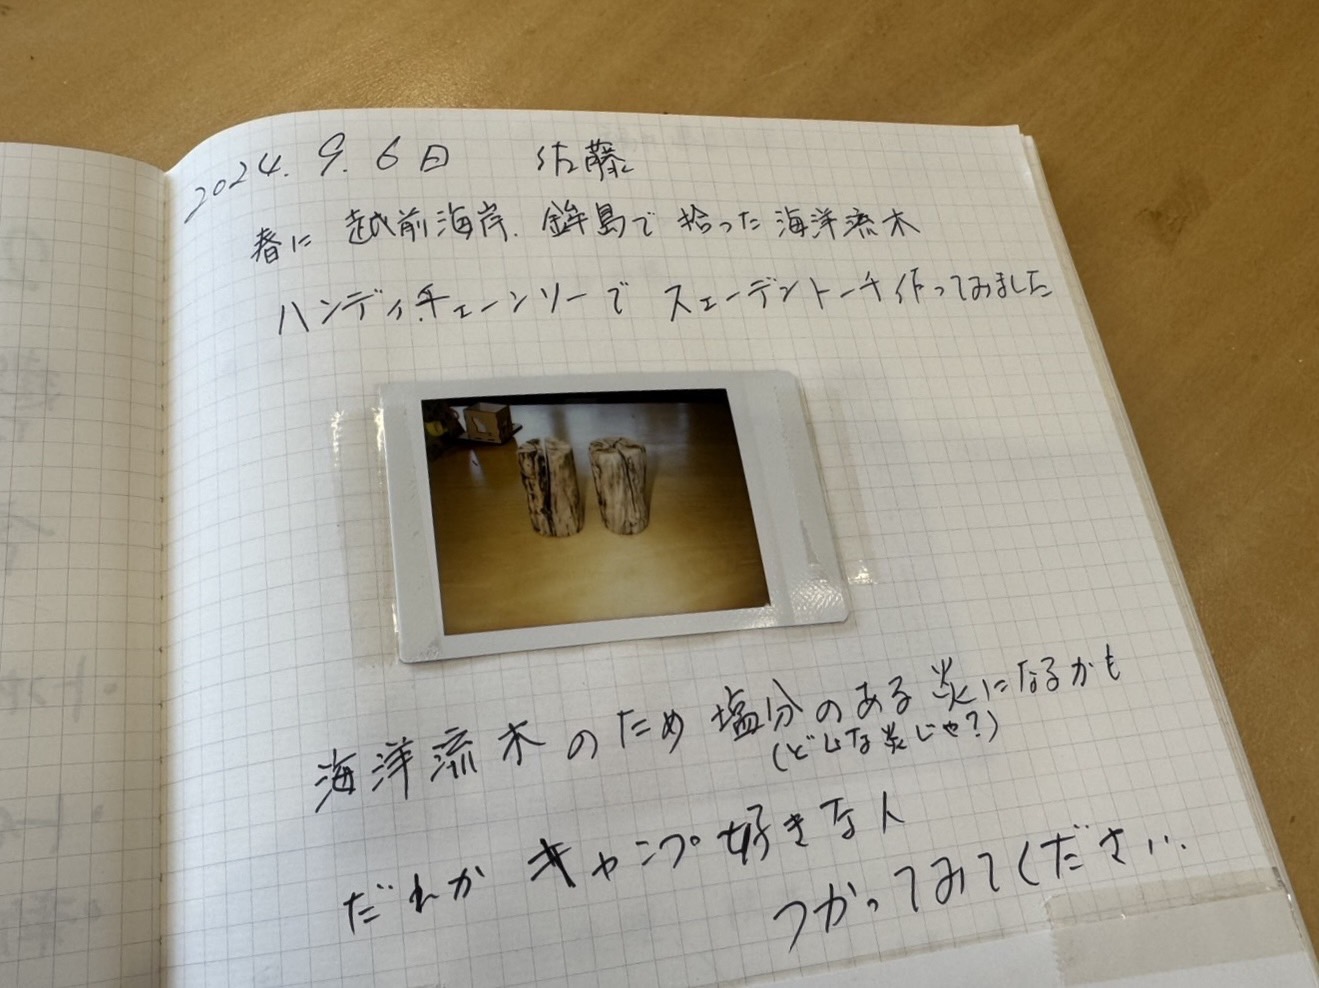 2024. 9. 6日 佐藤
春に 越前海岸、鉾島で 拾った 海洋流木
ハンディチェーンソーで スェーデントーチ作ってみました
海洋流木のため 塩分のある炎になるかも
(どんな炎じゃ?)
だれか キャンプ好きな人
つかってみてください.